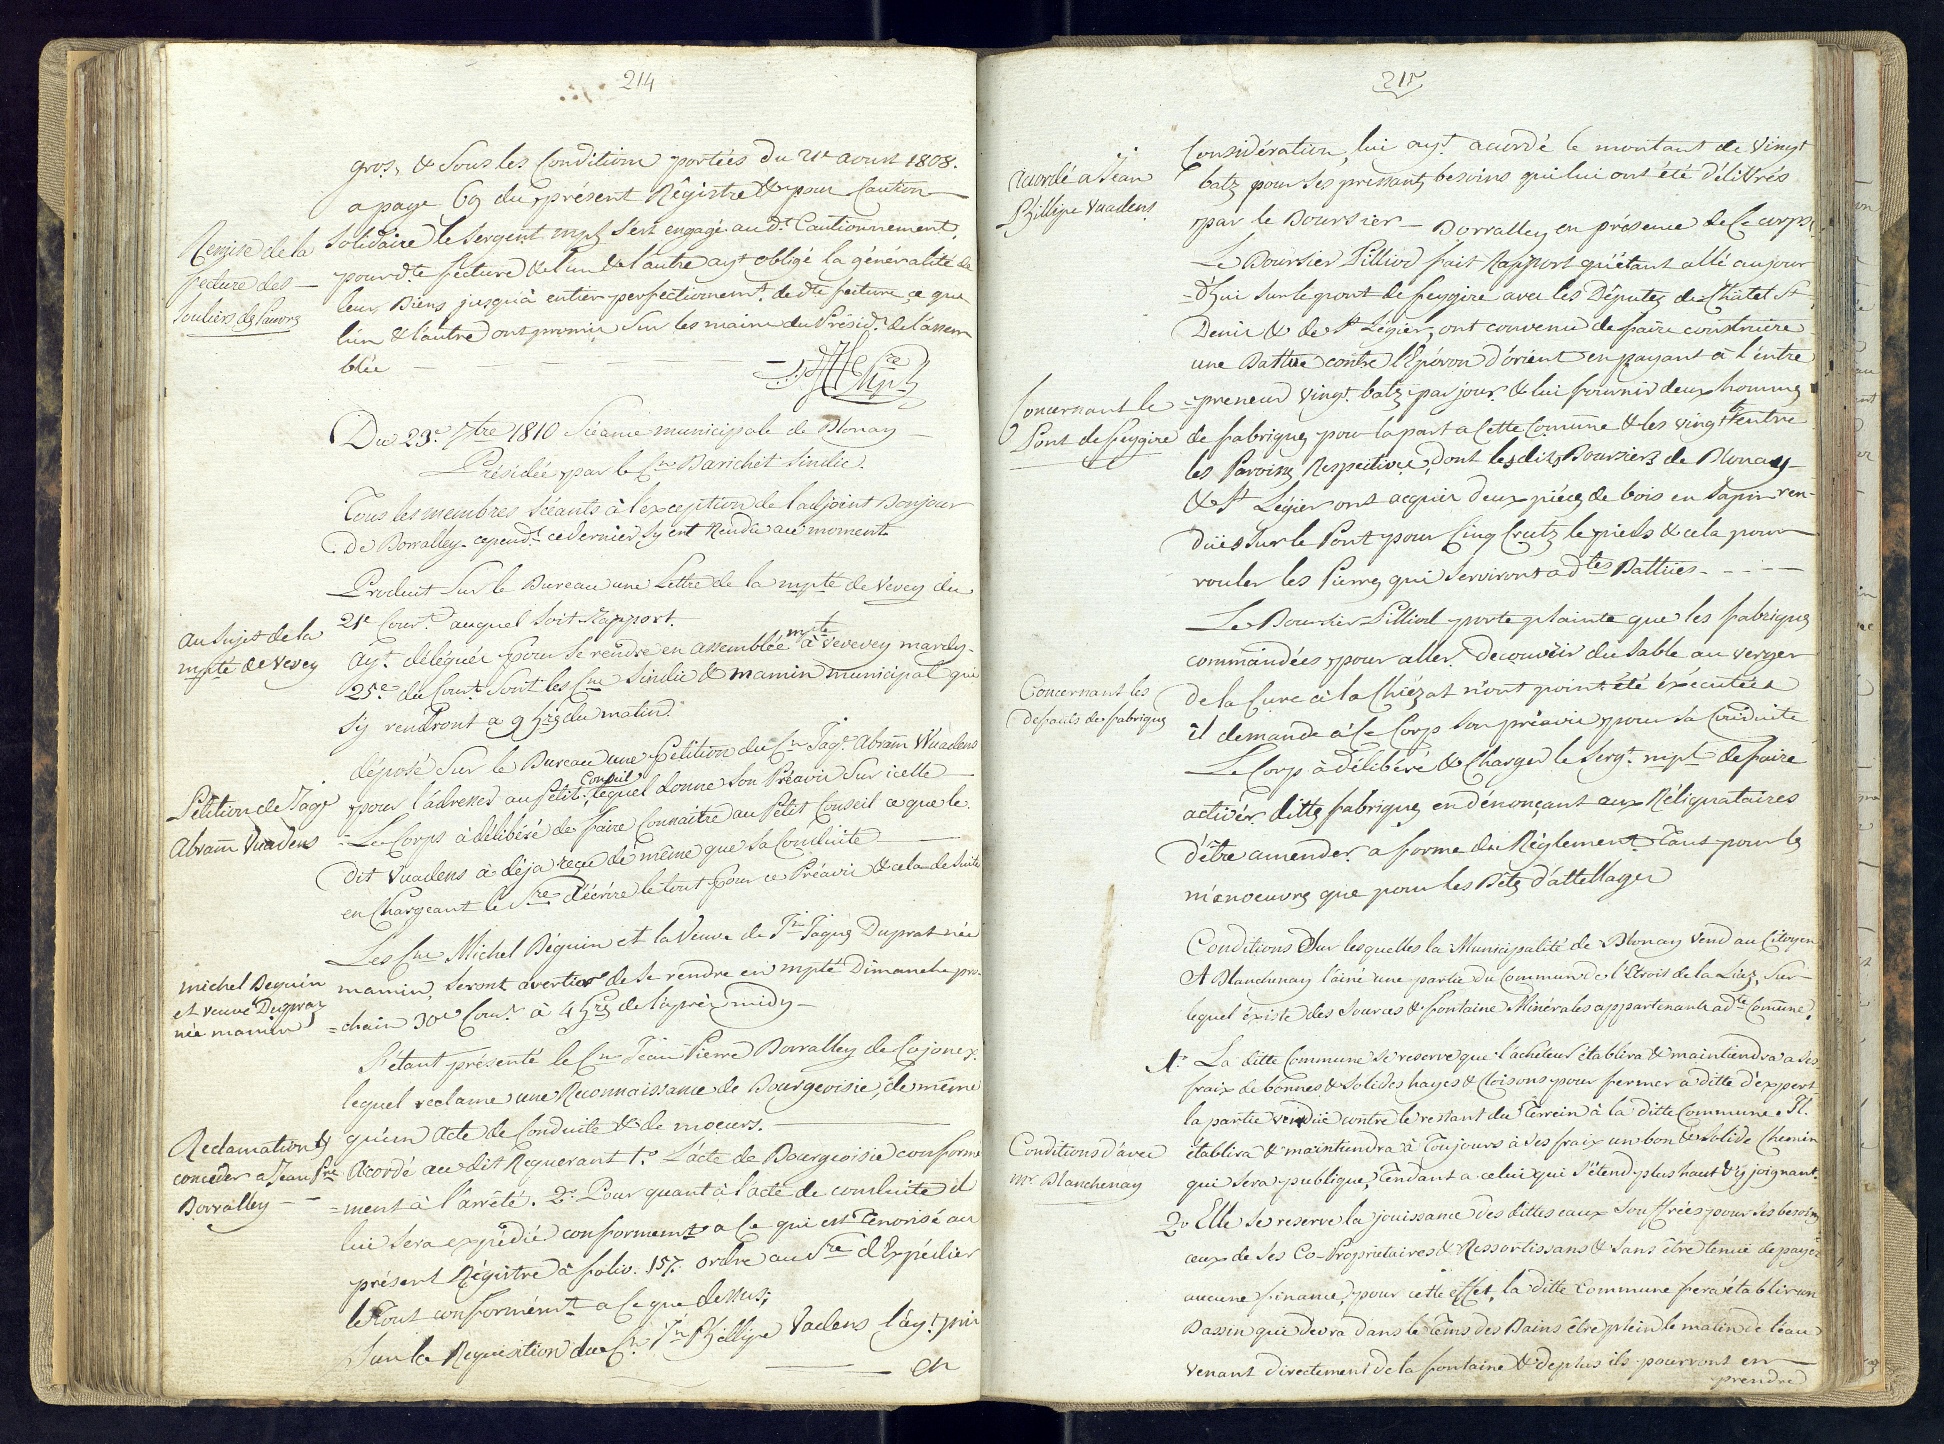 214
gros, & sous les Conditions portées du 21e aoust 1808.
a page 69 du présent Régistre & pour Caution
Remise de la
facture des
souliers des Pauvres
solidaire le sergent mpl s'est engagé au dt Cautionnement.
pour dte facture & l'un & l'autre ayt obligé la généralité de
leurs Biens jusqu'à entier perfectionnemt. de dte facture, ce que
l'un & l'autre ont promis sur les mains du Présidt. de l'assem
blée
Du 23e 7bre 1810 Séance municipale de Blonay
Présidée par le Cn Barichet Sindic.
Tous les membres séants à l'exception de l'adjoint Bonjour
de Borralley. cepend.t ce dernier s'y est rendu au moment
Produit sur le Bureau une Lettre de la mpté de Vevey du
21e Cour.t auquel soit Rapport.
au sujet de la
mpté de Vevey
ayt. délégués pour se rendre en assemblée mple à Vevevey mardy
25e du Cour.t sont les Cns Sindic & mamin municipal qui
s'y rendront a 9 hrs du matin.
déposé sur le Bureau une Pétition du Cn Jaqs. Abram Vuadens
Pétition de Jaqs
Abram Vuadens
pour l'adresser au Petit Conseil, lequel donne son Préavis sur icelle
Le Corps à délibéré de faire Connaitre au Petit Conseil ce que le
dit Vuadens à déja reçu de même que sa Conduite
en Chargeant le Sre d'écrire le tout pour ce Préavis & cela de suite
Les Cns Michel Béguin et la Veuve de Jn Jaques Duprat née
michel Beguin
et veuve Duprat
née mamin
mamin, seront avertis de se rendre en mpté Dimanche pro-
=chain 30e Cour.t à 4 hrs de l'après midy
S'étant présenté le Cn Jean Pierre Borralley de Cojonex.
lequel reclame une Reconnaissance de Bourgeoisie, de même
qu'un acte de Conduite & de moeurs.
Reclamation &
conceder a Jean Pre
Borralley
Acordé au dit Requerant 1.o L'acte de Bourgeoisie conforme
=ment à l'arrêté. 2.o Pour quant à l'acte de conduite il
lui sera expédié conformemt a ce qui est Tenorisé au
présent Régistre à folio. 157. ordre au Sre d'Expédier
le Tout conformémt a ce que dessus;
Sur la Requisition du Cn Jn Phillipe Vadens l'ayt. pris
en
215
Considération, lui ayt. acordé le montant de Vingt
acordé a Jean
Phillipe Vuadens
batz pour ses pressants besoins qui lui ont été délivrés
par le Boursier – Borralley en présence de Ce corps
Le Boursier Pilliod fait Rapport qu'étant allé aujour
=d'hui sur le pont de feygire avec les Députés de Châtel St
Denis & de St Légier, ont convenu de faire construire
une Battue contre l'Eperon d'orient en payant à l'entre
Concernant le
Pont de feygire
=preneur Vingt batz par jour & lui fournir deux hommes
de fabriques pour la part a Cette Comune & les vingt entre
les Paroiss Respectives, dont lesdits Boursiers de Blonay
& St Légier ont acquis deux pièces de bois en sapin ren-
düës sur le Pont pour Cinq Crutz le pieds & cela pour
rouler les Pierres qui serviront a dtes Battues
Le Boursier Pilliod porte plainte que les fabriques
commandées pour aller découvrir du sable au verger
Concernant les
defauts des fabriques
de la Cure à la Chiézat n'ont point été éxécutées
il demande à Ce Corps son préavis pour sa Conduite
Le Corps à délibéré & Charger le Sergt. mpl de faire
activer dittes fabriques en dénonçant aux Réliquataires
d'être amender a forme du Réglement Tant pour les
manoeuvres que pour les Bêtes d'attellages
Conditions Sur lesquelles la Municipalité de Blonay Vend au Citoyen
A Blanchenay l'ainé une partie du Commun de l'Etrois de la Liez, sur-
lequel éxiste des sources & fontaine Minérales appartenants a dte Comune.
1o La ditte Commune se reserve que l'acheteur établira & maintiendra a ses
fraix de bonnes & solides hayes & Cloisons pour fermer a ditte d'expert
la partie vendüe contre le restant du Terrein à la ditte Commune. Il.
Conditions d'avec
mr. Blanchenay
établira & maintiendra à Toujours à ses fraix un bon & solide Chemin
qui sera publique, Tendant a celui qui s'étend plus haut & y joignant.
2o Elle se reserve la jouissance des dittes eaux souffrées pour ses besoins
ceux de ses Co-Propriétaires & Ressortissans & sans être tenüe de payer
aucune finance, pour cette effet, la ditte Commune fera établir un
Bassin qui devra dans le Tems des Bains être plein le matin de l'eau
venant directement de la fontaine & de plus ils pourront en
prendre